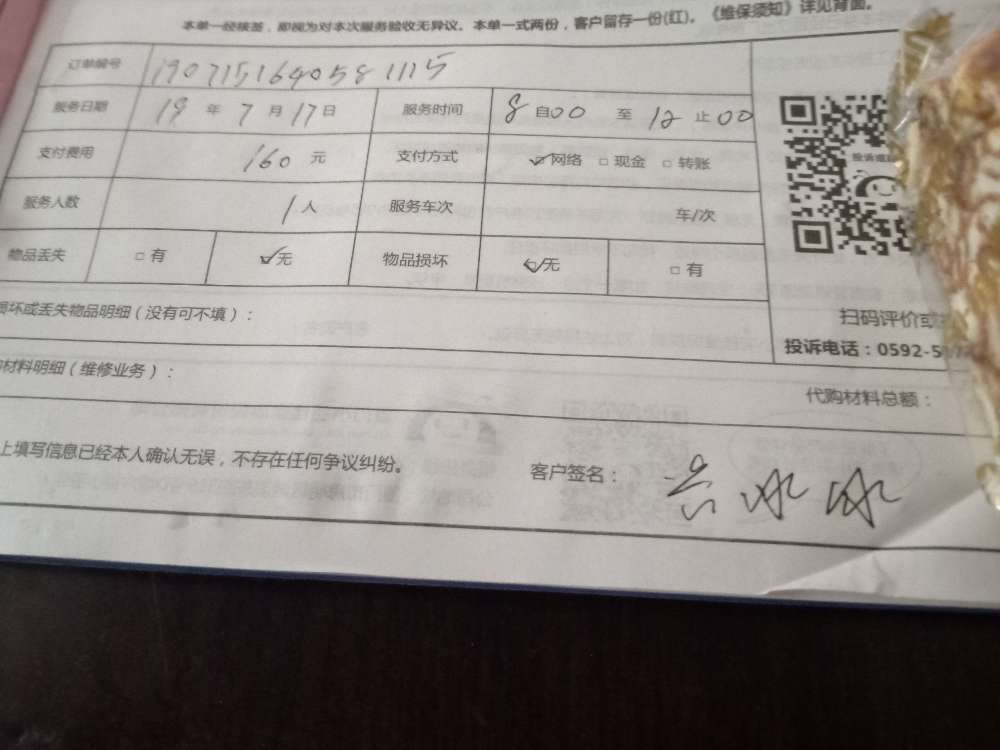 本单一经核签，即视为对本次服务验收无异议。本单一式两份，客户留存一份(红)。《维保须知》详见背面。
订单编号 1907151640581115
服务日期 19 年 7 月 17 日 服务时间 8 自00 至 12 止00
支付费用 160 元 支付方式 ☑网络 □现金 □转账
服务人数 1 人 服务车次 车/次
物品丢失 □有 ☑无 物品损坏 ☑无 □有
损坏或丢失物品明细（没有可不填）：
扫码评价或
投诉电话：0592-517
材料明细（维修业务）：
代购材料总额：
上填写信息已经本人确认无误，不存在任何争议纠纷。
客户签名： 冰冰